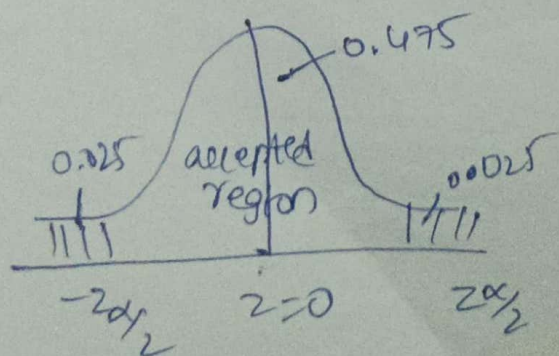 0.475
0.025
accepted
region
0.025
-zα/2
z=0
zα/2